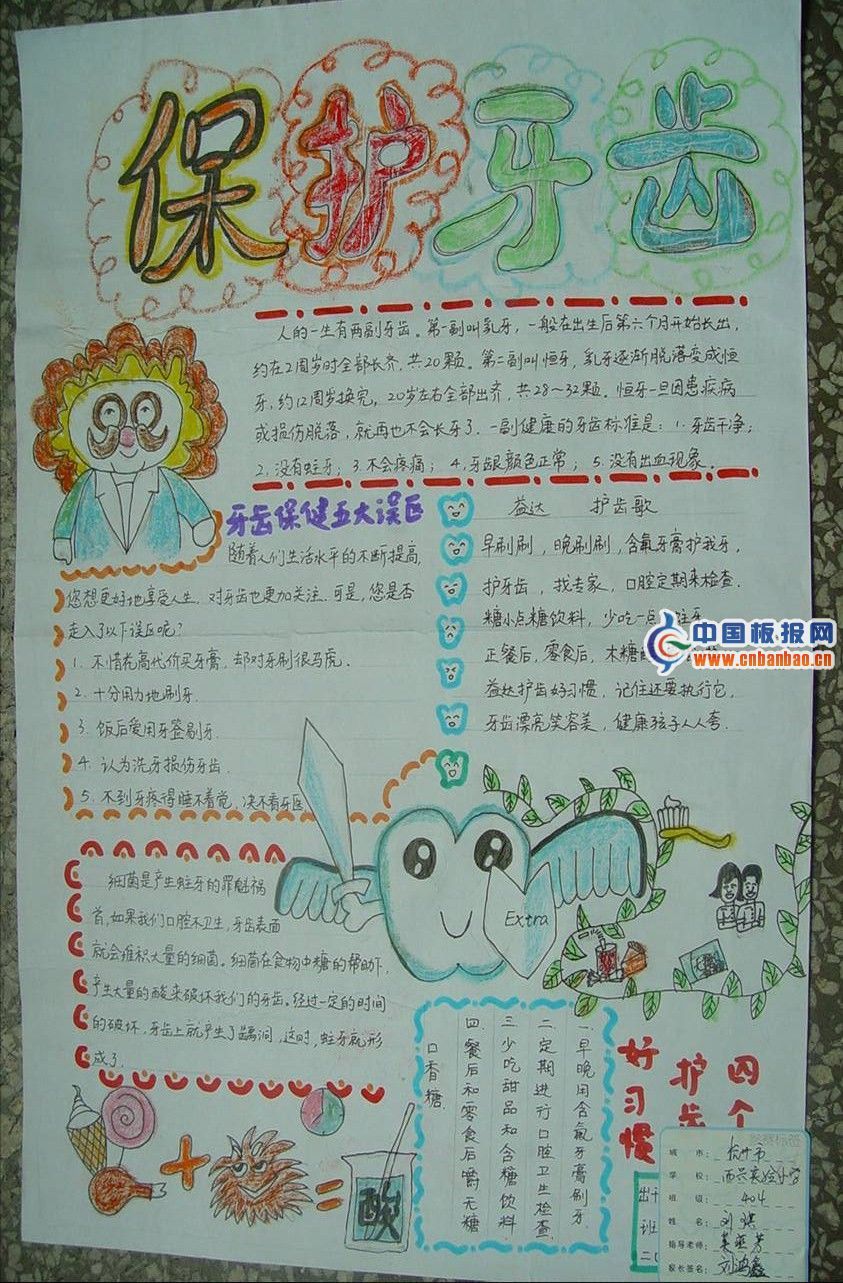 保护牙齿
人的一生有两副牙齿。第一副叫乳牙，一般在出生后第六个月开始长出，
约在2周岁时全部长齐，共20颗。第二副叫恒牙，乳牙逐渐脱落变成恒
牙，约12周岁换完，20岁左右全部出齐，共28～32颗。恒牙一旦因患疾病
或损伤脱落，就再也不会长牙了。一副健康的牙齿标准是：1.牙齿干净；
2.没有蛀牙；3.不会疼痛；4.牙龈颜色正常；5.没有出血现象。
牙齿保健五大误区
随着人们生活水平的不断提高，
您想更好地享受人生，对牙齿也更加关注．可是，您是否
走入了以下误区呢？
1．不惜花高代价买牙膏，却对牙刷很马虎．
2．十分用力地刷牙．
3．饭后爱用牙签剔牙．
4．认为洗牙损伤牙齿．
5．不到牙疼得睡不着觉，决不看牙医
益达 护齿歌
早刷刷，晚刷刷，含氟牙膏护我牙，
护牙齿，找专家，口腔定期来检查．
糖小点糖饮料，少吃一点 蛀牙
正餐后，零食后，木糖
益达护齿好习惯，记住还要执行它，
牙齿漂亮笑容美，健康孩子人人夸．
中国板报网
www.cnbanbao.cn
细菌是产生蛀牙的罪魁祸
首，如果我们口腔不卫生，牙齿表面
就会堆积大量的细菌。细菌在食物中糖的帮助下，
产生大量的酸来破坏我们的牙齿。经过一定的时间
的破坏，牙齿上就产生了龋洞，这时，蛀牙就形
成了．
Extra
四个
护齿
好习惯
一．早晚用含氟牙膏刷牙．
二．定期进行口腔卫生检查．
三．少吃甜品和含糖饮料
四．餐后和零食后嚼无糖
口香糖．
+
=
酸
班
城市：杭州市
学校：西兴实验小学
班级：404
姓名：刘琪
指导老师：
家长签名：